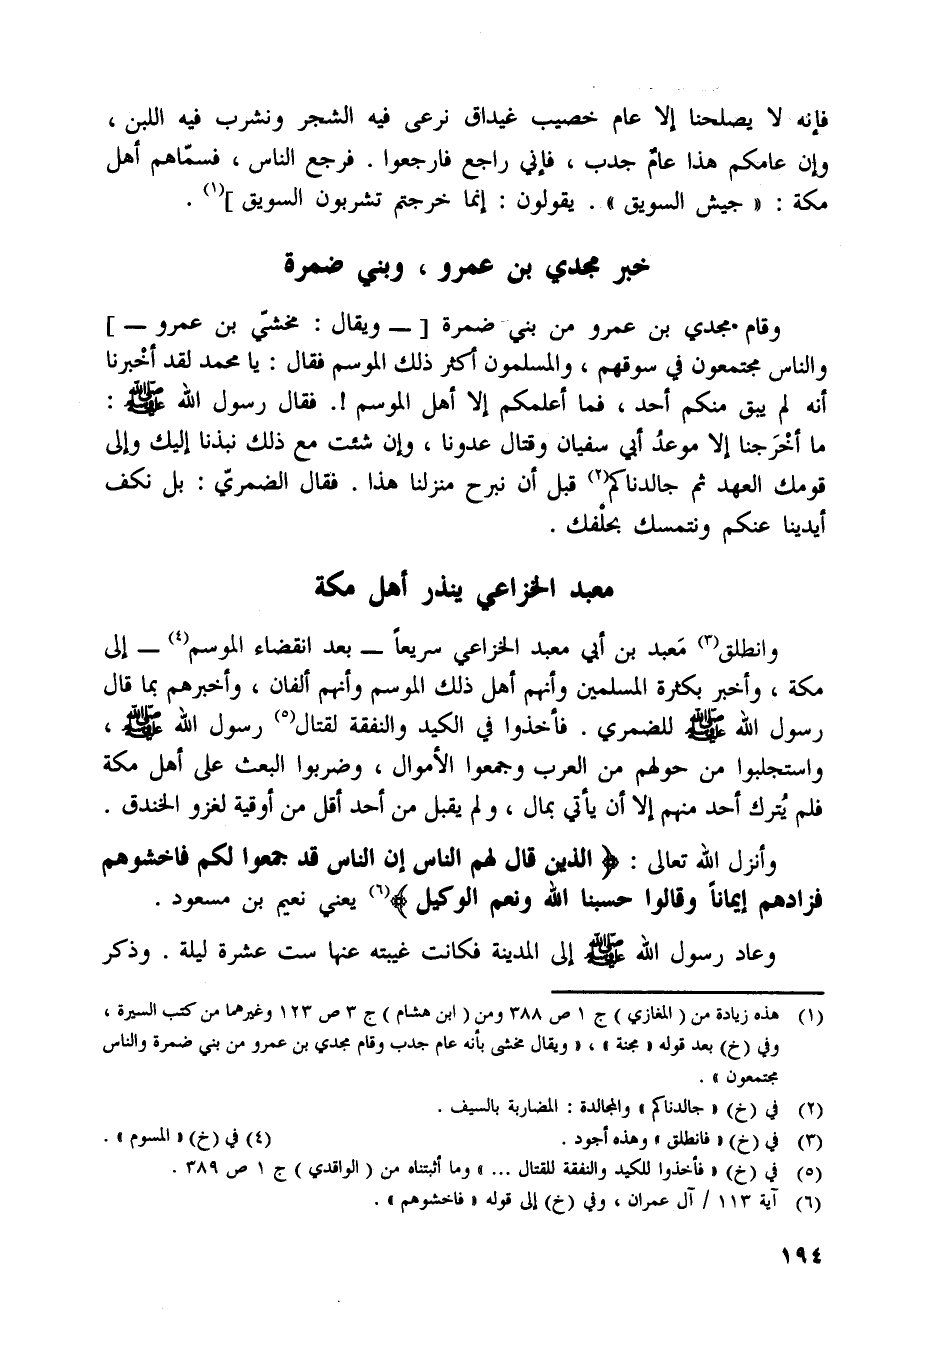 فإنه لا يصلحنا إلا عام خصيب غيداق نرعى فيه الشجر ونشرب فيه اللبن ،
وإن عامكم هذا عامٌ جدب ، فإني راجع فارجعوا . فرجع الناس ، فسمّاهم أهل
مكة : « جيش السويق » . يقولون : إنما خرجتم تشربون السويق ](١) .
خبر مجدي بن عمرو ، وبني ضمرة
وقام مجدي بن عمرو من بني ضمرة [ ــ ويقال : مخشيّ بن عمرو ــ ]
والناس مجتمعون في سوقهم ، والمسلمون أكثر ذلك الموسم فقال : يا محمد لقد أخْبرنا
أنه لم يبق منكم أحد ، فما أعلمكم إلا أهل الموسم !. فقال رسول الله ﷺ :
ما أخْرَجنا إلا موعدُ أبي سفيان وقتال عدونا ، وإن شئت مع ذلك نبذنا إليك وإلى
قومك العهد ثم جالدناكم(٢) قبل أن نبرح منزلنا هذا . فقال الضمريّ : بل نكف
أيدينا عنكم ونتمسك بحلْفك .
معبد الخزاعي ينذر أهل مكة
وانطلق(٣) مَعبد بن أبي معبد الخزاعي سريعاً ــ بعد انقضاء الموسم(٤) ــ إلى
مكة ، وأخبر بكثرة المسلمين وأنهم أهل ذلك الموسم وأنهم ألفان ، وأخبرهم بما قال
رسول الله ﷺ للضمري . فأخذوا في الكيد والنفقة لقتال(٥) رسول الله ﷺ ،
واستجلبوا من حولهم من العرب وجمعوا الأموال ، وضربوا البعث على أهل مكة
فلم يُترك أحد منهم إلا أن يأتي بمال ، ولم يقبل من أحد أقل من أوقية لغزو الخندق .
وأنزل الله تعالى : ﴿ الذين قال لهم الناس إن الناس قد جمعوا لكم فاخشوهم
فزادهم إيماناً وقالوا حسبنا الله ونعم الوكيل ﴾(٦) يعني نعيم بن مسعود .
وعاد رسول الله ﷺ إلى المدينة فكانت غيبته عنها ست عشرة ليلة . وذكر
(١) هذه زيادة من ( المغازي ) ج ١ ص ٣٨٨ ومن ( ابن هشام ) ج ٣ ص ١٢٣ وغيرهما من كتب السيرة ،
وفي (خ) بعد قوله « مجنة » ، « ويقال مخشى بأنه عام جدب وقام مجدي بن عمرو من بني ضمرة والناس
مجتمعون » .
(٢) في (خ) « جالدناكم » والمجالدة : المضاربة بالسيف .
(٣) في (خ) « فانطلق » وهذه أجود . (٤) في (خ) « المسوم » .
(٥) في (خ) « فأخذوا للكيد والنفقة للقتال ... » وما أثبتناه من ( الواقدي ) ج ١ ص ٣٨٩ .
(٦) آية ١١٣ / آل عمران ، وفي (خ) إلى قوله « فاخشوهم » .
١٩٤